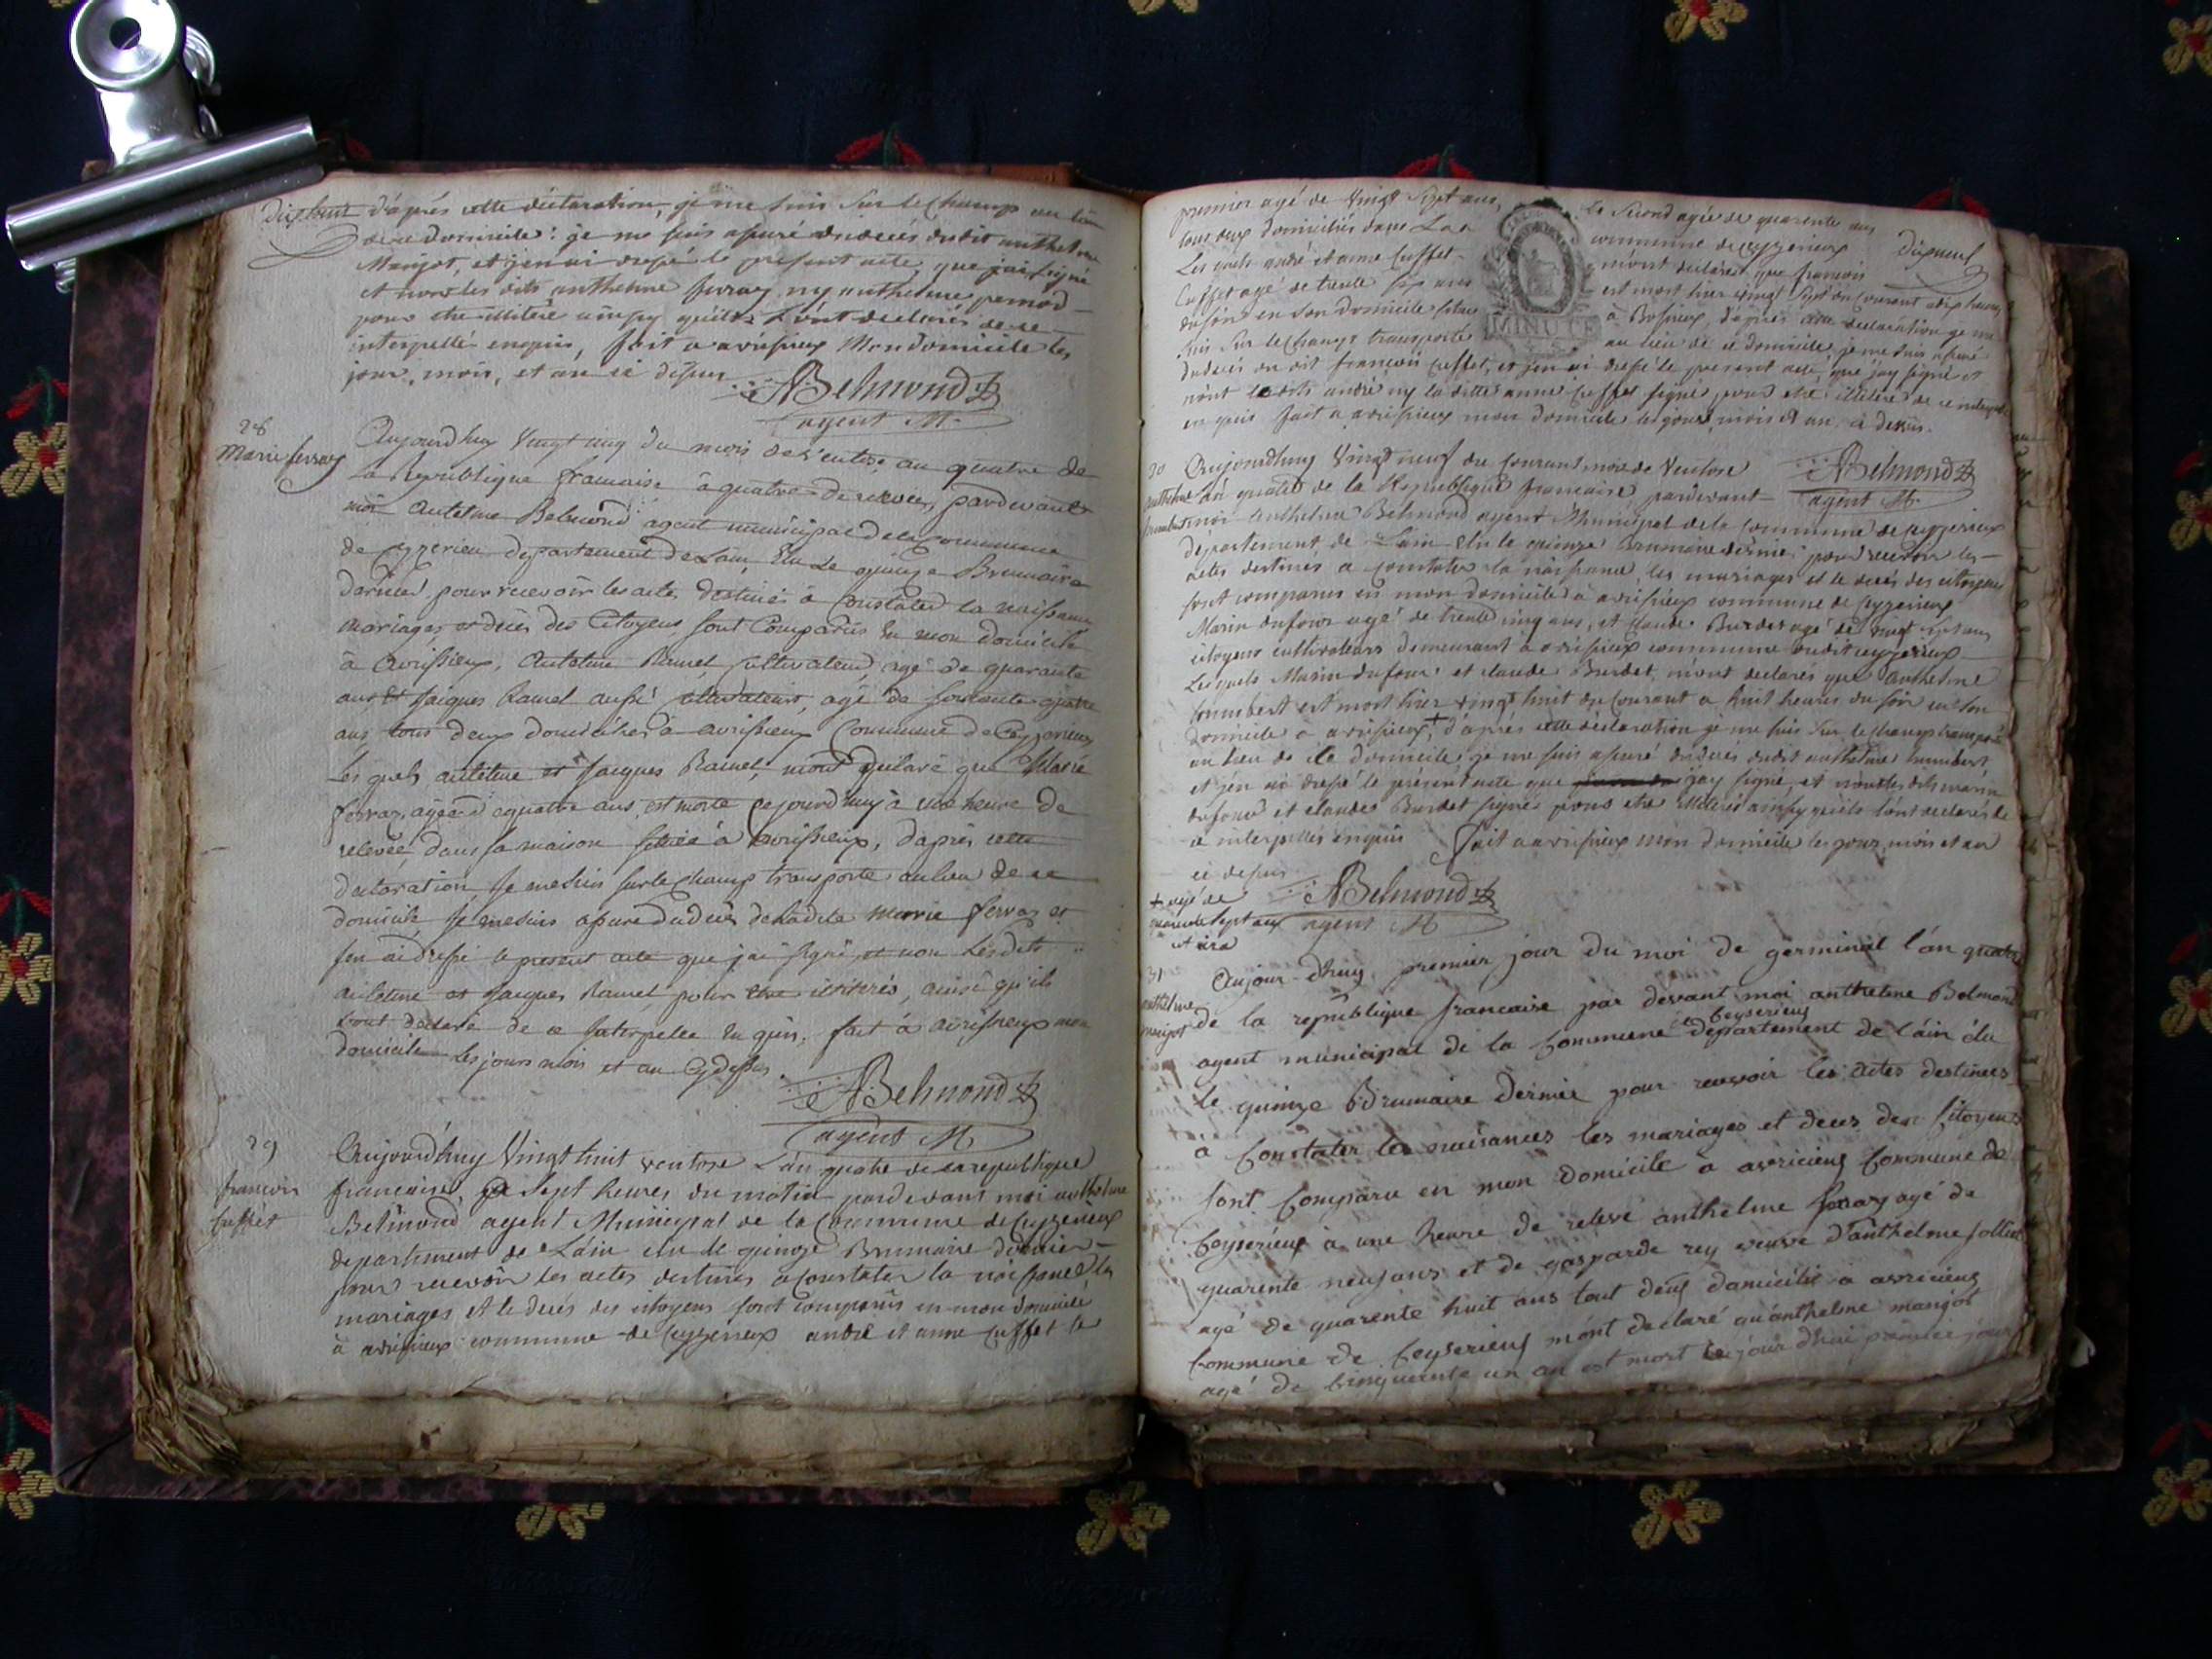 Dixhuit d'après cette déclaration, je me suis sur le Champ au lieu
de ce domicile: je me suis assuré du decés dudit anthelme
Marijot, et j'en ai dressé le present acte, que j'ai signé
et non les dits anthelme ferraz ny anthelme pernod
pour etre illiteré ainsy qu'ils L'ont declarés de ce
interpellé enquis, fait a avrissieux Mon domicile les
jour, mois, et an ci dessus
ABelmond
agent M.
28
Marie ferraz
Aujourdhuy Vingt cinq du mois de Ventose an quatre de
la Republique francaise à quatre de relevée, pardevant
moi Antelme Belmond agent municipal de la Commune
de Ceyzerieu departement de Lain, Elu Le quinze Brumaire
dernier pour recevoir les actes destinés à Constater la naissance
mariages et décès des Citoyens sont Comparus en mon domicile
à avrissieux, Antelme Ramel, cultivateur, agé de quarante
ans et Jaiques Ramel aussi cultivateurs, agé de soixante quatre
ans tous deux domiciliés à avrissieux Commune de Ceyzerieux
Les quels antelme et Jacques Ramel, m'ont déclaré que Marie
ferraz, agée quatre ans, est morte cejourd'huy à une heure de
relevée, dans sa maison située à avrissieux, d'après cette
declaration Je me suis sur le Champ transporté au lieu de ce
domicile, Je me suis assuré du decés de ladite Marie ferraz et
j'en ai dressé le present acte que j'ai signé, et non Lesdits
antelme et Jacques Ramel pour etre illitérés, ainsi qu'ils
l'ont declaré de ce Interpellé Enquis, fait à avrissieux mon
domicile Les jours mois et an Cy dessus
ABelmond
agent M.
29
francois
Cuffet
Aujourd'huy Vingt huit ventose L'an quatre de la republique
francaise, a Sept heures du matin pardevant moi anthelme
Belmond agent Municipal de la Commune de Ceyzerieux
departement de L'ain elu le quinze Brumaire dernier
pour recevoir les actes destinés a Constater la naissance, les
mariages et le decés des citoyens sont comparus en mon domicile
à avrissieux commune de Ceyzerieux andré et anne Cuffet le
premier agé de Vingt Sept ans, Le Second agée de quarente ans
tous deux domiciliés dans La commune de Ceyzerieux
Dixneuf
Les quels andré et anne Cuffet m'ont declarés que francois
Cuffet agé de trente six ans est mort hier vingt Sept du Courant a dix heures
du soir en son domicile situé à Bossieux, d'après cette declaration je me
suis sur le Champ transporté au lieu de ce domicile, je me suis assuré
MINUTE
du decés du dit francois Cuffet, et j'en ai dressé le present acte, que j'ay signé et
n'ont le dits andré ny la ditte anne Cuffet signé pour etre illiteré de ce interpellé
enquis fait a avrissieux mon domicile les jour, mois et an ci dessus.
ABelmond
agent M.
30
anthelme
humbert
Aujourdhuy Vingt neuf du Courant mois de Ventose
an quatre de la Republique francaise, pardevant
moi Anthelme Belmond agent Municipal de la Commune de Ceyzerieux
departement de Lain Elu le quinze Brumaire dernier pour recevoir les
actes destinés a Constater la naissance, les mariages et le decés des citoyens
sont comparus en mon domicile à avrissieux commune de Ceyzerieux
Marin dufour agé de trente cinq ans, et Claude Burdet agé de vingt sept ans
citoyens cultivateurs demeurant à avrissieux commune dudit ceyzerieux
Lesquels Marin dufour et claude Burdet, m'ont declarés que anthelme
humbert est mort hier vingt huit du Courant a huit heures du soir en son
domicile a avrissieux,+ d'après cette déclaration je me suis sur le champ transporté
au lieu de ce domicile, je me suis assuré du decés dudit anthelme humbert
et j'en ai dressé le présent acte que j'ay signé, et non les dits marin
dufour et claude Burdet signé pour etre illiterés ainsy qu'ils l'ont declarés de
ce interpellés enquis fait a avrissieux mon domicile les jour, mois et an
ci dessus
ABelmond
agent M
+ agé de
quarente sept ans
31
anthelme
marijot
Aujour-dhuy premier jour du moi de germinal l'an quatre
de la republique francaise par devant moi anthelme Belmond
agent municipal de la Commune de Ceyserieux departement de l'ain élu
le quinze Brumaire dernier pour recevoir les actes destinées
à Constater les naisances les mariages et deces des Citoyens
sont Comparu en mon domicile a avricieux Commune de
Ceyserieux à une heure de relevé anthelme ferraz agé de
quarente neuf ans et de gasparde rey veuve d'anthelme jolliet
agé de quarente huit ans tout deux domicilié a avricieux
Commune de Ceyserieux m'ont declaré qu'anthelme marijot
agé de Cinquante un an est mort ce jour dhui premier jour